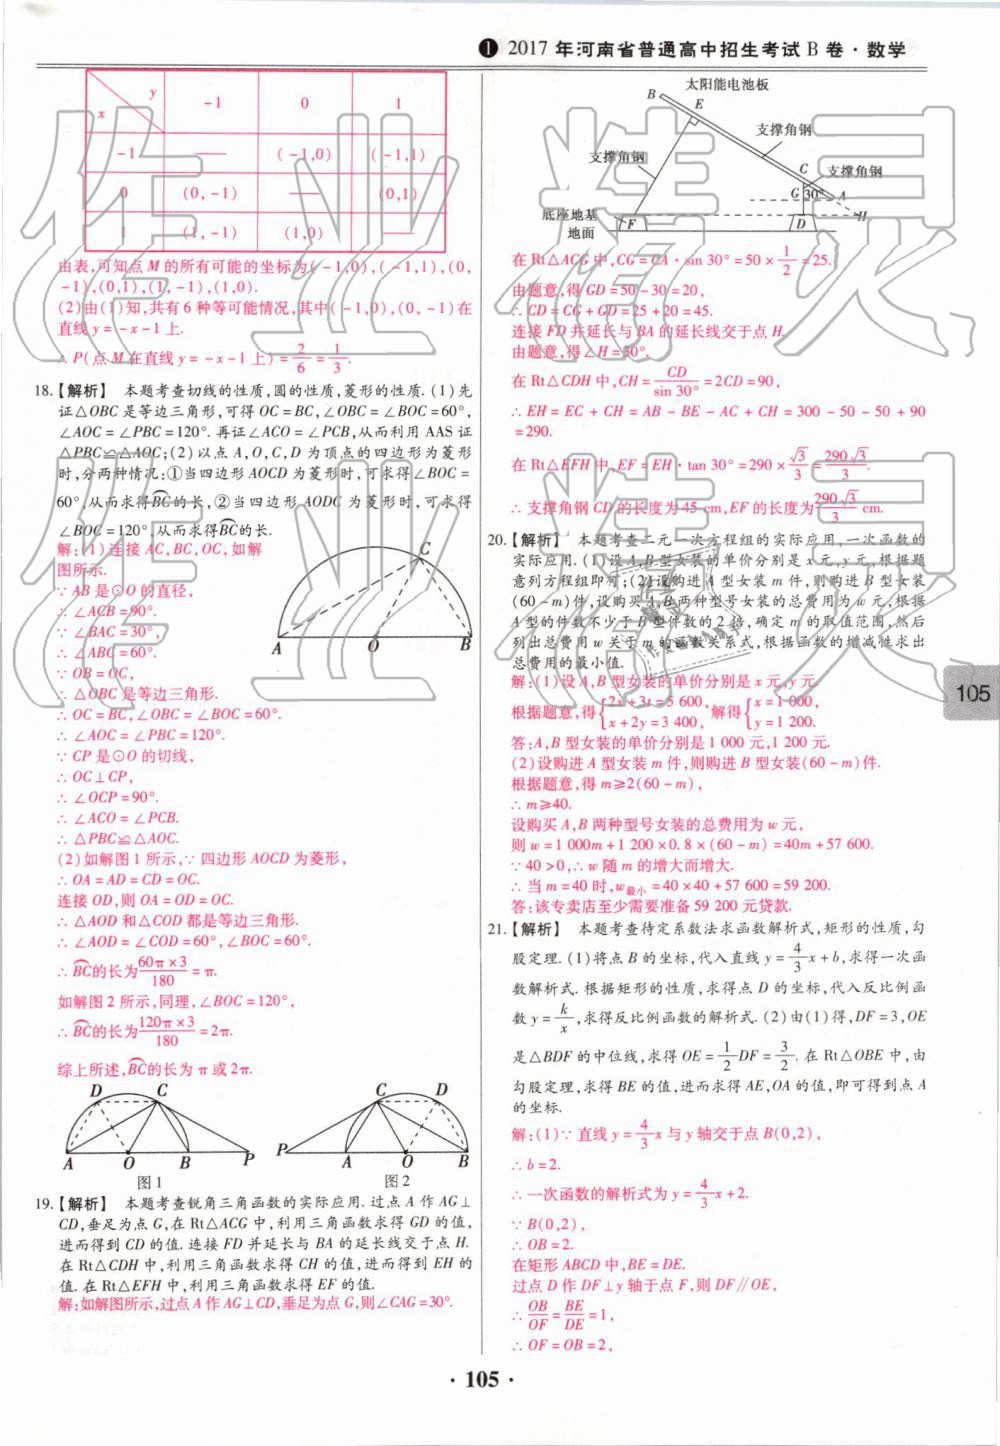 ❶ 2017 年河南省普通高中招生考试 B 卷·数学
y
x
-1 0 1
-1 —— (-1,0) (-1,1)
0 (0,-1) —— (0,1)
1 (1,-1) (1,0) ——
由表,可知点 M 的所有可能的坐标为(-1,0),(-1,1),(0,
-1),(0,1),(1,-1),(1,0).
(2)由(1)知,共有 6 种等可能情况,其中(-1,0),(0,-1)在
直线 y=-x-1 上.
∴P(点 M 在直线 y=-x-1 上)=2/6=1/3.
18.【解析】 本题考查切线的性质,圆的性质,菱形的性质.(1)先
证△OBC 是等边三角形,可得 OC=BC,∠OBC=∠BOC=60°,
∠AOC=∠PBC=120°.再证∠ACO=∠PCB,从而利用 AAS 证
△PBC≌△AOC;(2)以点 A,O,C,D 为顶点的四边形为菱形
时,分两种情况:①当四边形 AOCD 为菱形时,可求得∠BOC=
60°,从而求得B͡C的长,②当四边形 AODC 为菱形时,可求得
∠BOC=120°,从而求得B͡C的长.
解:(1)连接 AC,BC,OC,如解
图所示.
∵AB 是⊙O 的直径,
∴∠ACB=90°.
∵∠BAC=30°,
∴∠ABC=60°.
∵OB=OC,
∴△OBC 是等边三角形.
∴OC=BC,∠OBC=∠BOC=60°.
∴∠AOC=∠PBC=120°.
∵CP 是⊙O 的切线,
∴OC⊥CP,
∴∠OCP=90°.
∴∠ACO=∠PCB.
∴△PBC≌△AOC.
C
A O B
(2)如解图 1 所示,∵四边形 AOCD 为菱形,
∴OA=AD=CD=OC.
连接 OD,则 OA=OD=OC.
∴△AOD 和△COD 都是等边三角形.
∴∠AOD=∠COD=60°,∠BOC=60°.
∴B͡C的长为60π×3/180=π.
如解图 2 所示,同理,∠BOC=120°,
∴B͡C的长为120π×3/180=2π.
综上所述,B͡C的长为 π 或 2π.
D C
A O B P
图 1
C D
P A O B
图 2
19.【解析】 本题考查锐角三角函数的实际应用.过点 A 作 AG⊥
CD,垂足为点 G,在 Rt△ACG 中,利用三角函数求得 GD 的值,
进而得到 CD 的值.连接 FD 并延长与 BA 的延长线交于点 H.
在 Rt△CDH 中,利用三角函数求得 CH 的值,进而得到 EH 的
值.在 Rt△EFH 中,利用三角函数求得 EF 的值.
解:如解图所示,过点 A 作 AG⊥CD,垂足为点 G,则∠CAG=30°.
太阳能电池板
B E
支撑角钢
支撑角钢
C 支撑角钢
G 30° A
底座地基 F D H
地面
在 Rt△ACG 中,CG=CA·sin 30°=50×1/2=25.
由题意,得 GD=50-30=20,
∴CD=CG+GD=25+20=45.
连接 FD 并延长与 BA 的延长线交于点 H.
由题意,得∠H=30°.
在 Rt△CDH 中,CH=CD/sin 30°=2CD=90,
∴EH=EC+CH=AB-BE-AC+CH=300-50-50+90
=290.
在 Rt△EFH 中,EF=EH·tan 30°=290×√3/3=290√3/3.
∴支撑角钢 CD 的长度为 45 cm,EF 的长度为290√3/3 cm.
20.【解析】 本题考查二元一次方程组的实际应用,一次函数的
实际应用.(1)设 A,B 型女装的单价分别是 x 元,y 元,根据题
意列方程组即可;(2)设购进 A 型女装 m 件,则购进 B 型女装
(60-m)件,设购买 A,B 两种型号女装的总费用为 w 元,根据
A 型的件数不少于 B 型件数的 2 倍,确定 m 的取值范围,然后
列出总费用 w 关于 m 的函数关系式,根据函数的增减性求出
总费用的最小值.
解:(1)设 A,B 型女装的单价分别是 x 元,y 元.
根据题意,得{2x+3y=5 600, x+2y=3 400, 解得{x=1 000, y=1 200.
答:A,B 型女装的单价分别是 1 000 元,1 200 元.
(2)设购进 A 型女装 m 件,则购进 B 型女装(60-m)件.
根据题意,得 m≥2(60-m),
∴m≥40.
设购买 A,B 两种型号女装的总费用为 w 元,
则 w=1 000m+1 200×0.8×(60-m)=40m+57 600.
∵40>0,∴w 随 m 的增大而增大.
∴当 m=40 时,w最小=40×40+57 600=59 200.
答:该专卖店至少需要准备 59 200 元贷款.
21.【解析】 本题考查待定系数法求函数解析式,矩形的性质,勾
股定理.(1)将点 B 的坐标,代入直线 y=4/3x+b,求得一次函
数解析式.根据矩形的性质,求得点 D 的坐标,代入反比例函
数 y=k/x,求得反比例函数的解析式.(2)由(1)得,DF=3,OE
是△BDF 的中位线,求得 OE=1/2DF=3/2.在 Rt△OBE 中,由
勾股定理,求得 BE 的值,进而求得 AE,OA 的值,即可得到点 A
的坐标.
解:(1)∵直线 y=4/3x 与 y 轴交于点 B(0,2),
∴b=2.
∴一次函数的解析式为 y=4/3x+2.
∵B(0,2),
∴OB=2.
在矩形 ABCD 中,BE=DE.
过点 D 作 DF⊥y 轴于点 F,则 DF∥OE,
∴OB/OF=BE/DE=1,
∴OF=OB=2,
105
·105·
作业精灵
作业精灵